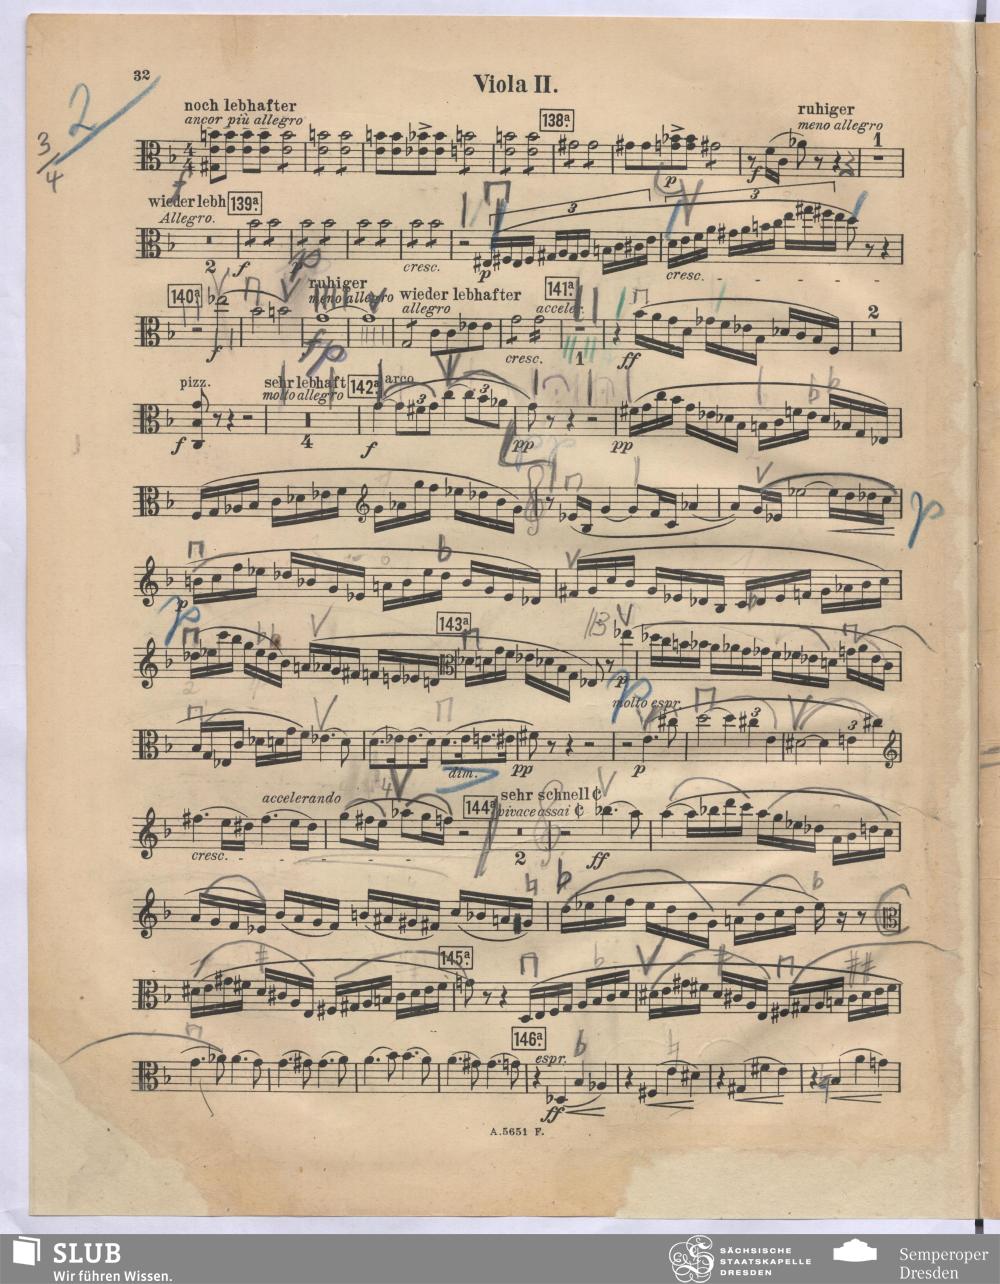 32
Viola II.
2
3/4
noch lebhafter
ancor più allegro
138a.
ruhiger
meno allegro
f
p
f
1
wieder lebh
139a.
Allegro.
3
3
2
f
p
cresc.
p
cresc.
140a.
ruhiger
meno allegro
wieder lebhafter
allegro
141a.
acceler.
f
fp
cresc.
1
ff
2
pizz.
sehr lebhaft
molto allegro
142a.
arco
3
3
f
4
f
pp
pp
p
p
p
143a.
B
p
p
molto espr.
3
3
dim.
pp
p
accelerando
4
144a.
sehr schnell
vivace assai
cresc.
2
ff
145a.
146a.
espr.
ff
A.5651 F.
SLUB
Wir führen Wissen.
SÄCHSISCHE
STAATSKAPELLE
DRESDEN
Semperoper
Dresden